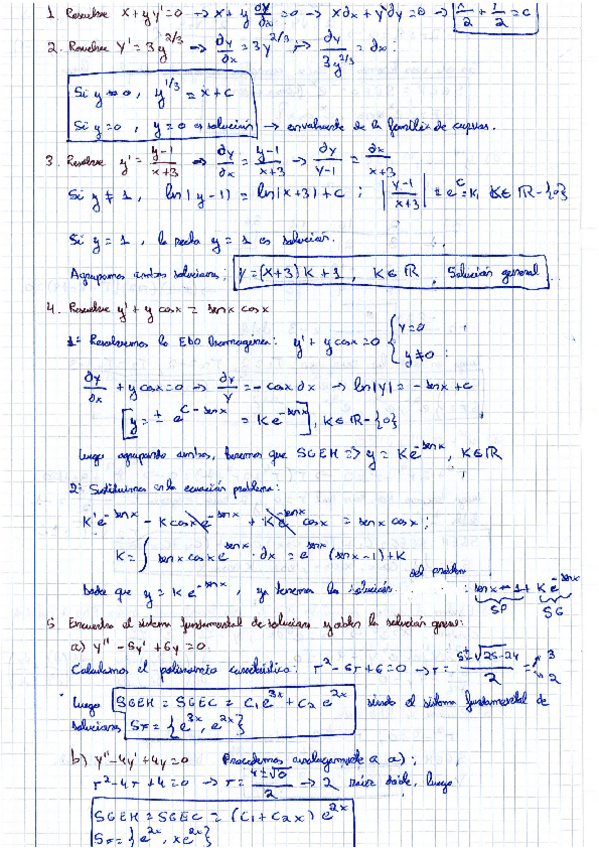 1. Resolver x + yy' = 0 → x + y ∂y/∂x = 0 → x∂x + y∂y = 0 → x²/2 + y²/2 = C
2. Resolver y' = 3y^(2/3) → ∂y/∂x = 3y^(2/3) → ∂y/3y^(2/3) = ∂x :
Si y ≠ 0, y^(1/3) = x + c
Si y = 0, y = 0 es solución → envolvente de la familia de curvas.
3. Resolver y' = (y-1)/(x+3) → ∂y/∂x = (y-1)/(x+3) → ∂y/(y-1) = ∂x/(x+3)
Si y ≠ 1, ln|y-1| = ln|x+3| + c ; |(y-1)/(x+3)| = e^c = k, K ∈ ℝ - {0}
Si y = 1, la recta y = 1 es solución.
Agrupamos ambas soluciones; y = (x+3)K + 1, K ∈ ℝ, Solución general.
4. Resolver y' + y cosx = senx cosx
1º Resolvemos la EDO homogénea: y' + y cosx = 0 { y = 0
y ≠ 0 :
∂y/∂x + y cosx = 0 → ∂y/y = - cosx ∂x → ln|y| = - senx + c
[y = ± e^(c - senx) = Ke^(-senx)], K ∈ ℝ - {0}
Luego agrupando ambos, tenemos que SGEH => y = Ke^(-senx), K ∈ ℝ
2º Sustituimos en la ecuación problema:
K'e^(-senx) - K cosx e^(-senx) + K e^(-senx) cosx = senx cosx ;
K = ∫ senx cosx e^(senx) · ∂x = e^(senx) (senx - 1) + K
del problem
Dado que y = K e^(-senx), ya tenemos la solución : senx - 1 + K e^(-senx)
SP SG
5 Encuentra el sistema fundamental de soluciones y obtén la solución general:
a) y'' - 5y' + 6y = 0
Calculamos el polinomio característico: r² - 5r + 6 = 0 → r = (5 ± √(25-24))/2 = 3
2
Luego SGEH = SGEC = C₁e^(3x) + C₂e^(2x) siendo el sistema fundamental de
soluciones SF = {e^(3x), e^(2x)}
b) y'' - 4y' + 4y = 0 Procedemos análogamente a a) ;
r² - 4r + 4 = 0 → r = (4 ± √0)/2 → 2 raíz doble, luego
SGEH = SGEC = (C₁ + C₂x) e^(2x)
SF = {e^(2x), xe^(2x)}